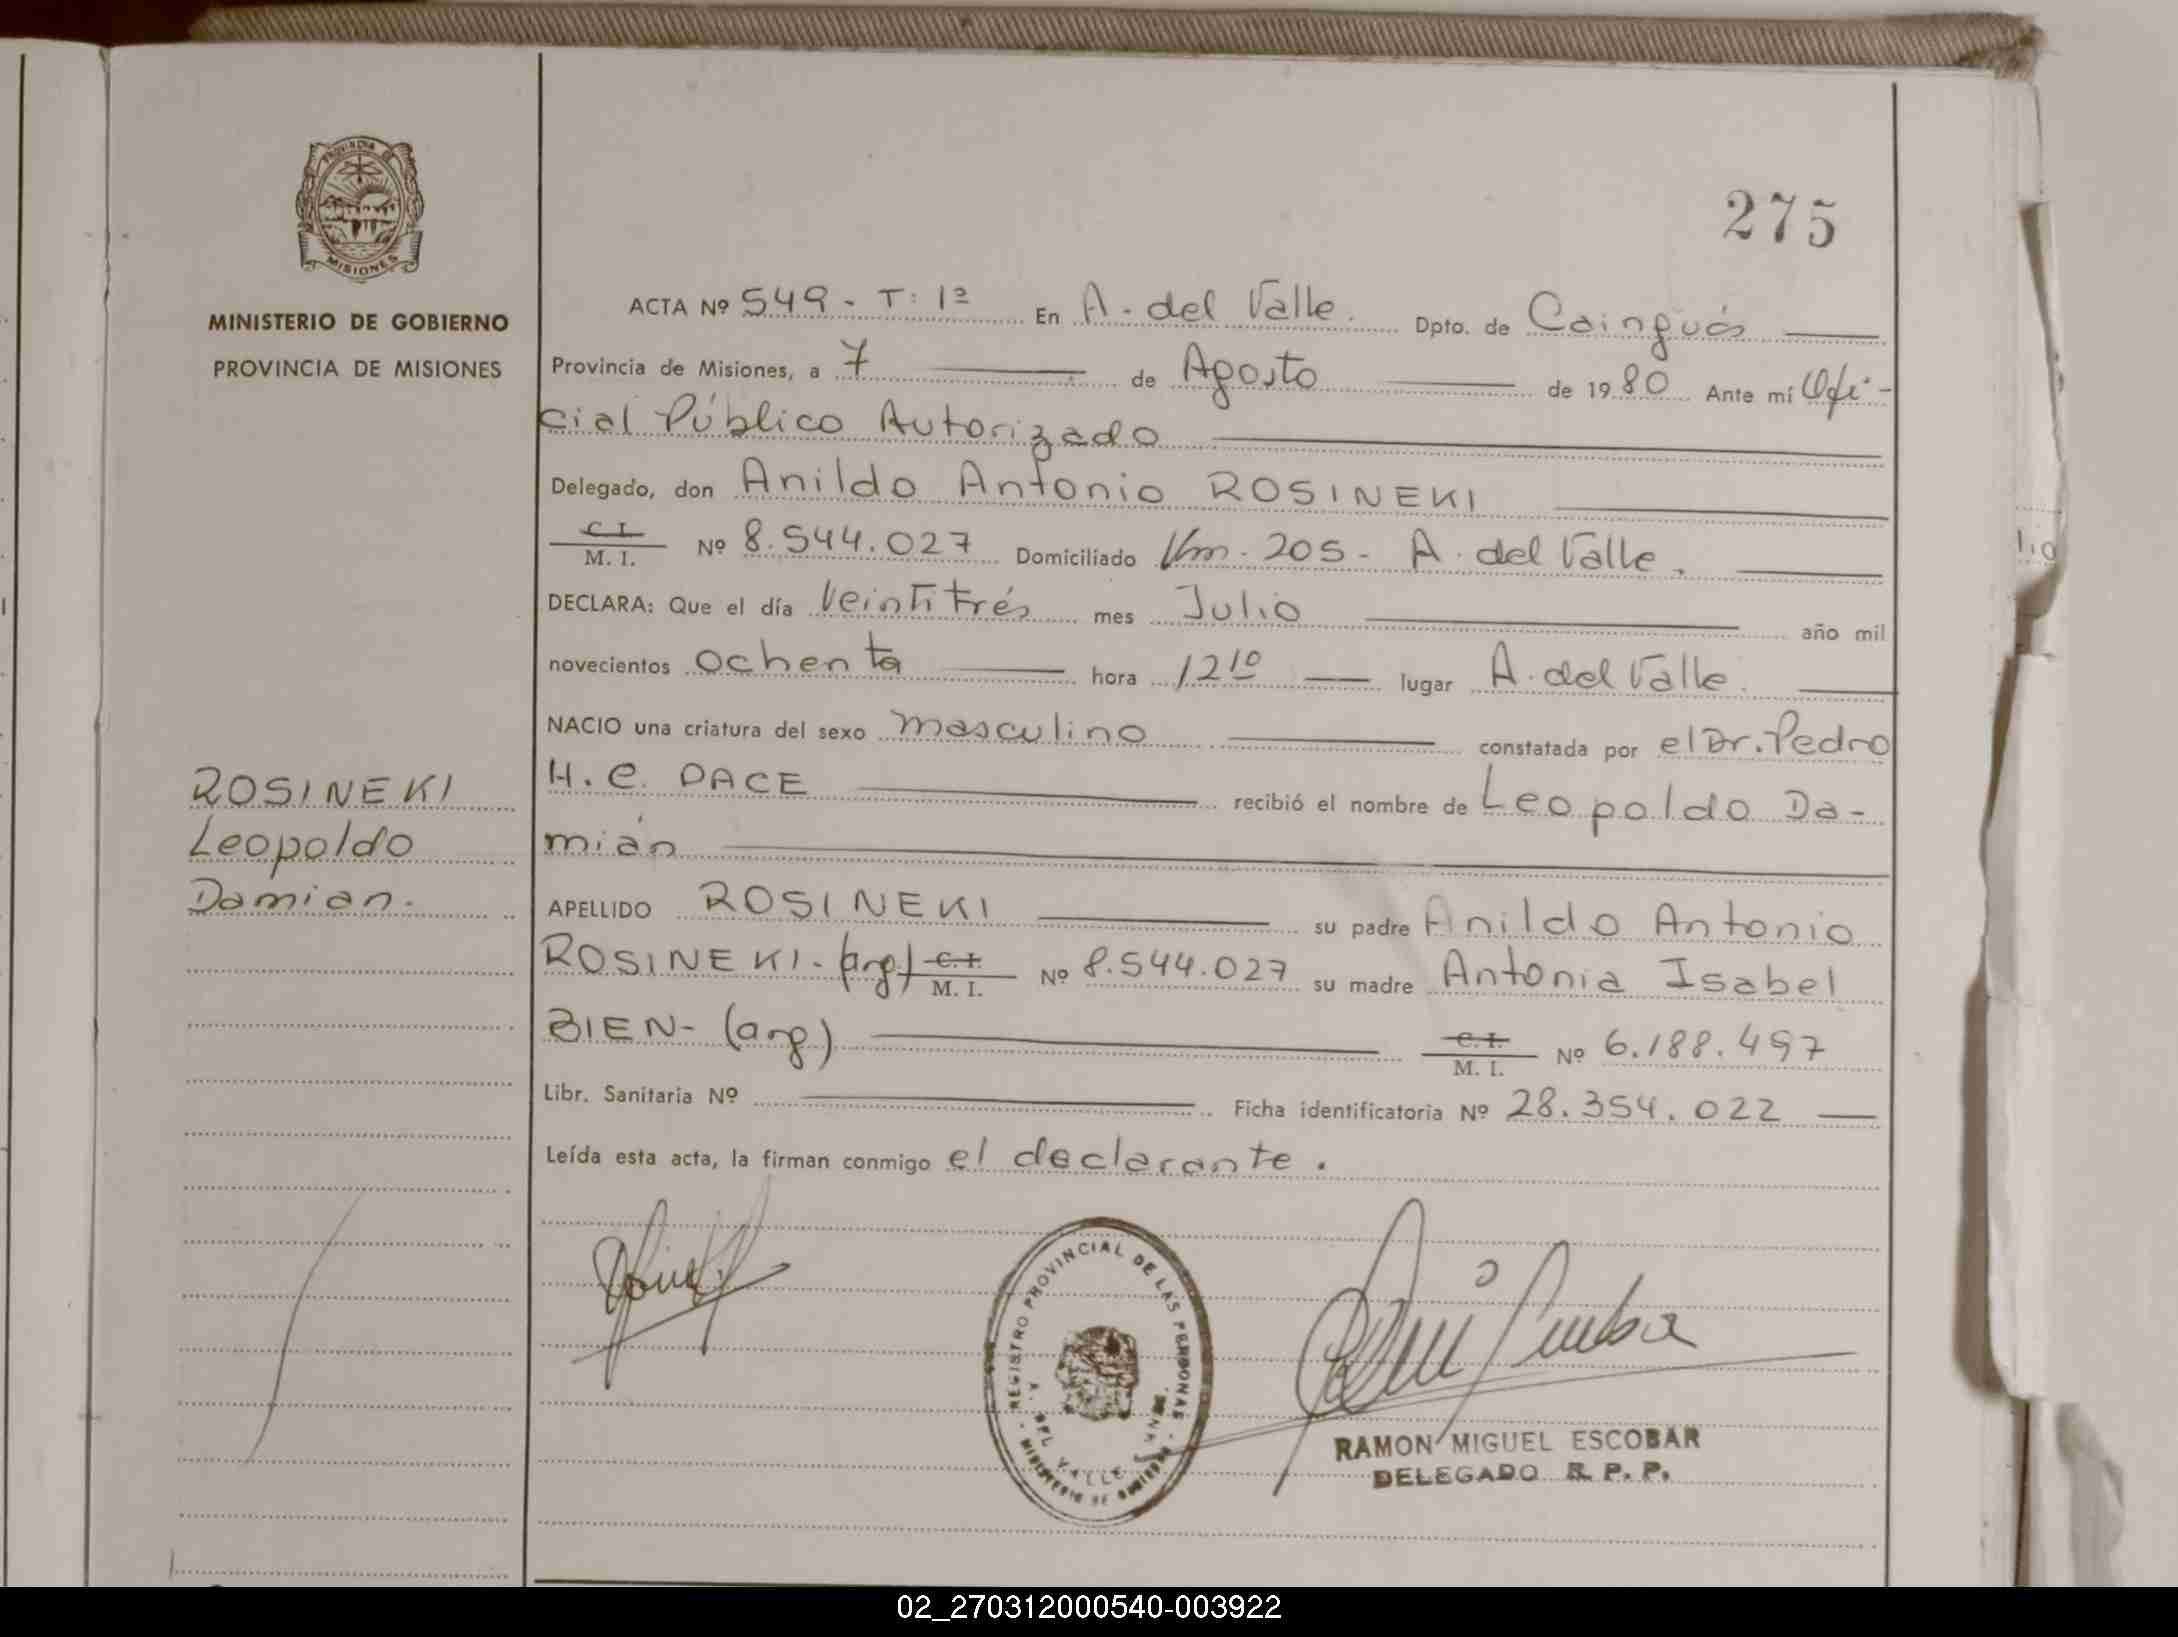 PROVINCIA DE
MISIONES
MINISTERIO DE GOBIERNO
PROVINCIA DE MISIONES
ROSINEKI
Leopoldo
Damian.
275
ACTA Nº 549 - T: 1º En A. del Valle. Dpto. de Cainguás
Provincia de Misiones, a 7 de Agosto de 1980 Ante mí Ofi-
cial Público Autorizado
Delegado, don Anildo Antonio ROSINEKI
C. I.
M. I. Nº 8.544.027 Domiciliado Km. 205 - A. del Valle.
DECLARA: Que el día Veintitrés mes Julio año mil
novecientos ochenta hora 12 10 lugar A. del Valle.
NACIO una criatura del sexo masculino constatada por el Dr. Pedro
H. C. DACE recibió el nombre de Leopoldo Da-
mián
APELLIDO ROSINEKI su padre Anildo Antonio
ROSINEKI - (arg) C. I. M. I. Nº 8.544.027 su madre Antonia Isabel
BIEN - (arg) C. I. M. I. Nº 6.188.497
Libr. Sanitaria Nº Ficha identificatoria Nº 28.354.022
Leída esta acta, la firman conmigo el declarante.
REGISTRO PROVINCIAL DE LAS PERSONAS
MINISTERIO DE GOBIERNO
A. DEL VALLE
RAMON MIGUEL ESCOBAR
DELEGADO R. P. P.
02_270312000540-003922